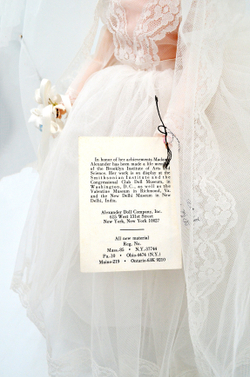 In honor of her achievements Madame
Alexander has been made a life member
of the Brooklyn Institute of Arts and
Science. Her work is on display at the
Smithsonian Institute and the
Congressional Club Doll Museum, in
Washington, D.C., as well as the
Valentine Museum in Richmond, Va.
and the New Delhi Museum in New
Delhi, India.
Alexander Doll Company, Inc.
615 West 131st Street
New York, New York 10027
All new material
Reg. No.
Mass.-05 • N.Y.-57744
Pa.-10 • Ohio-6876 (N.Y.)
Maine-219 • Ontario-64K 9210